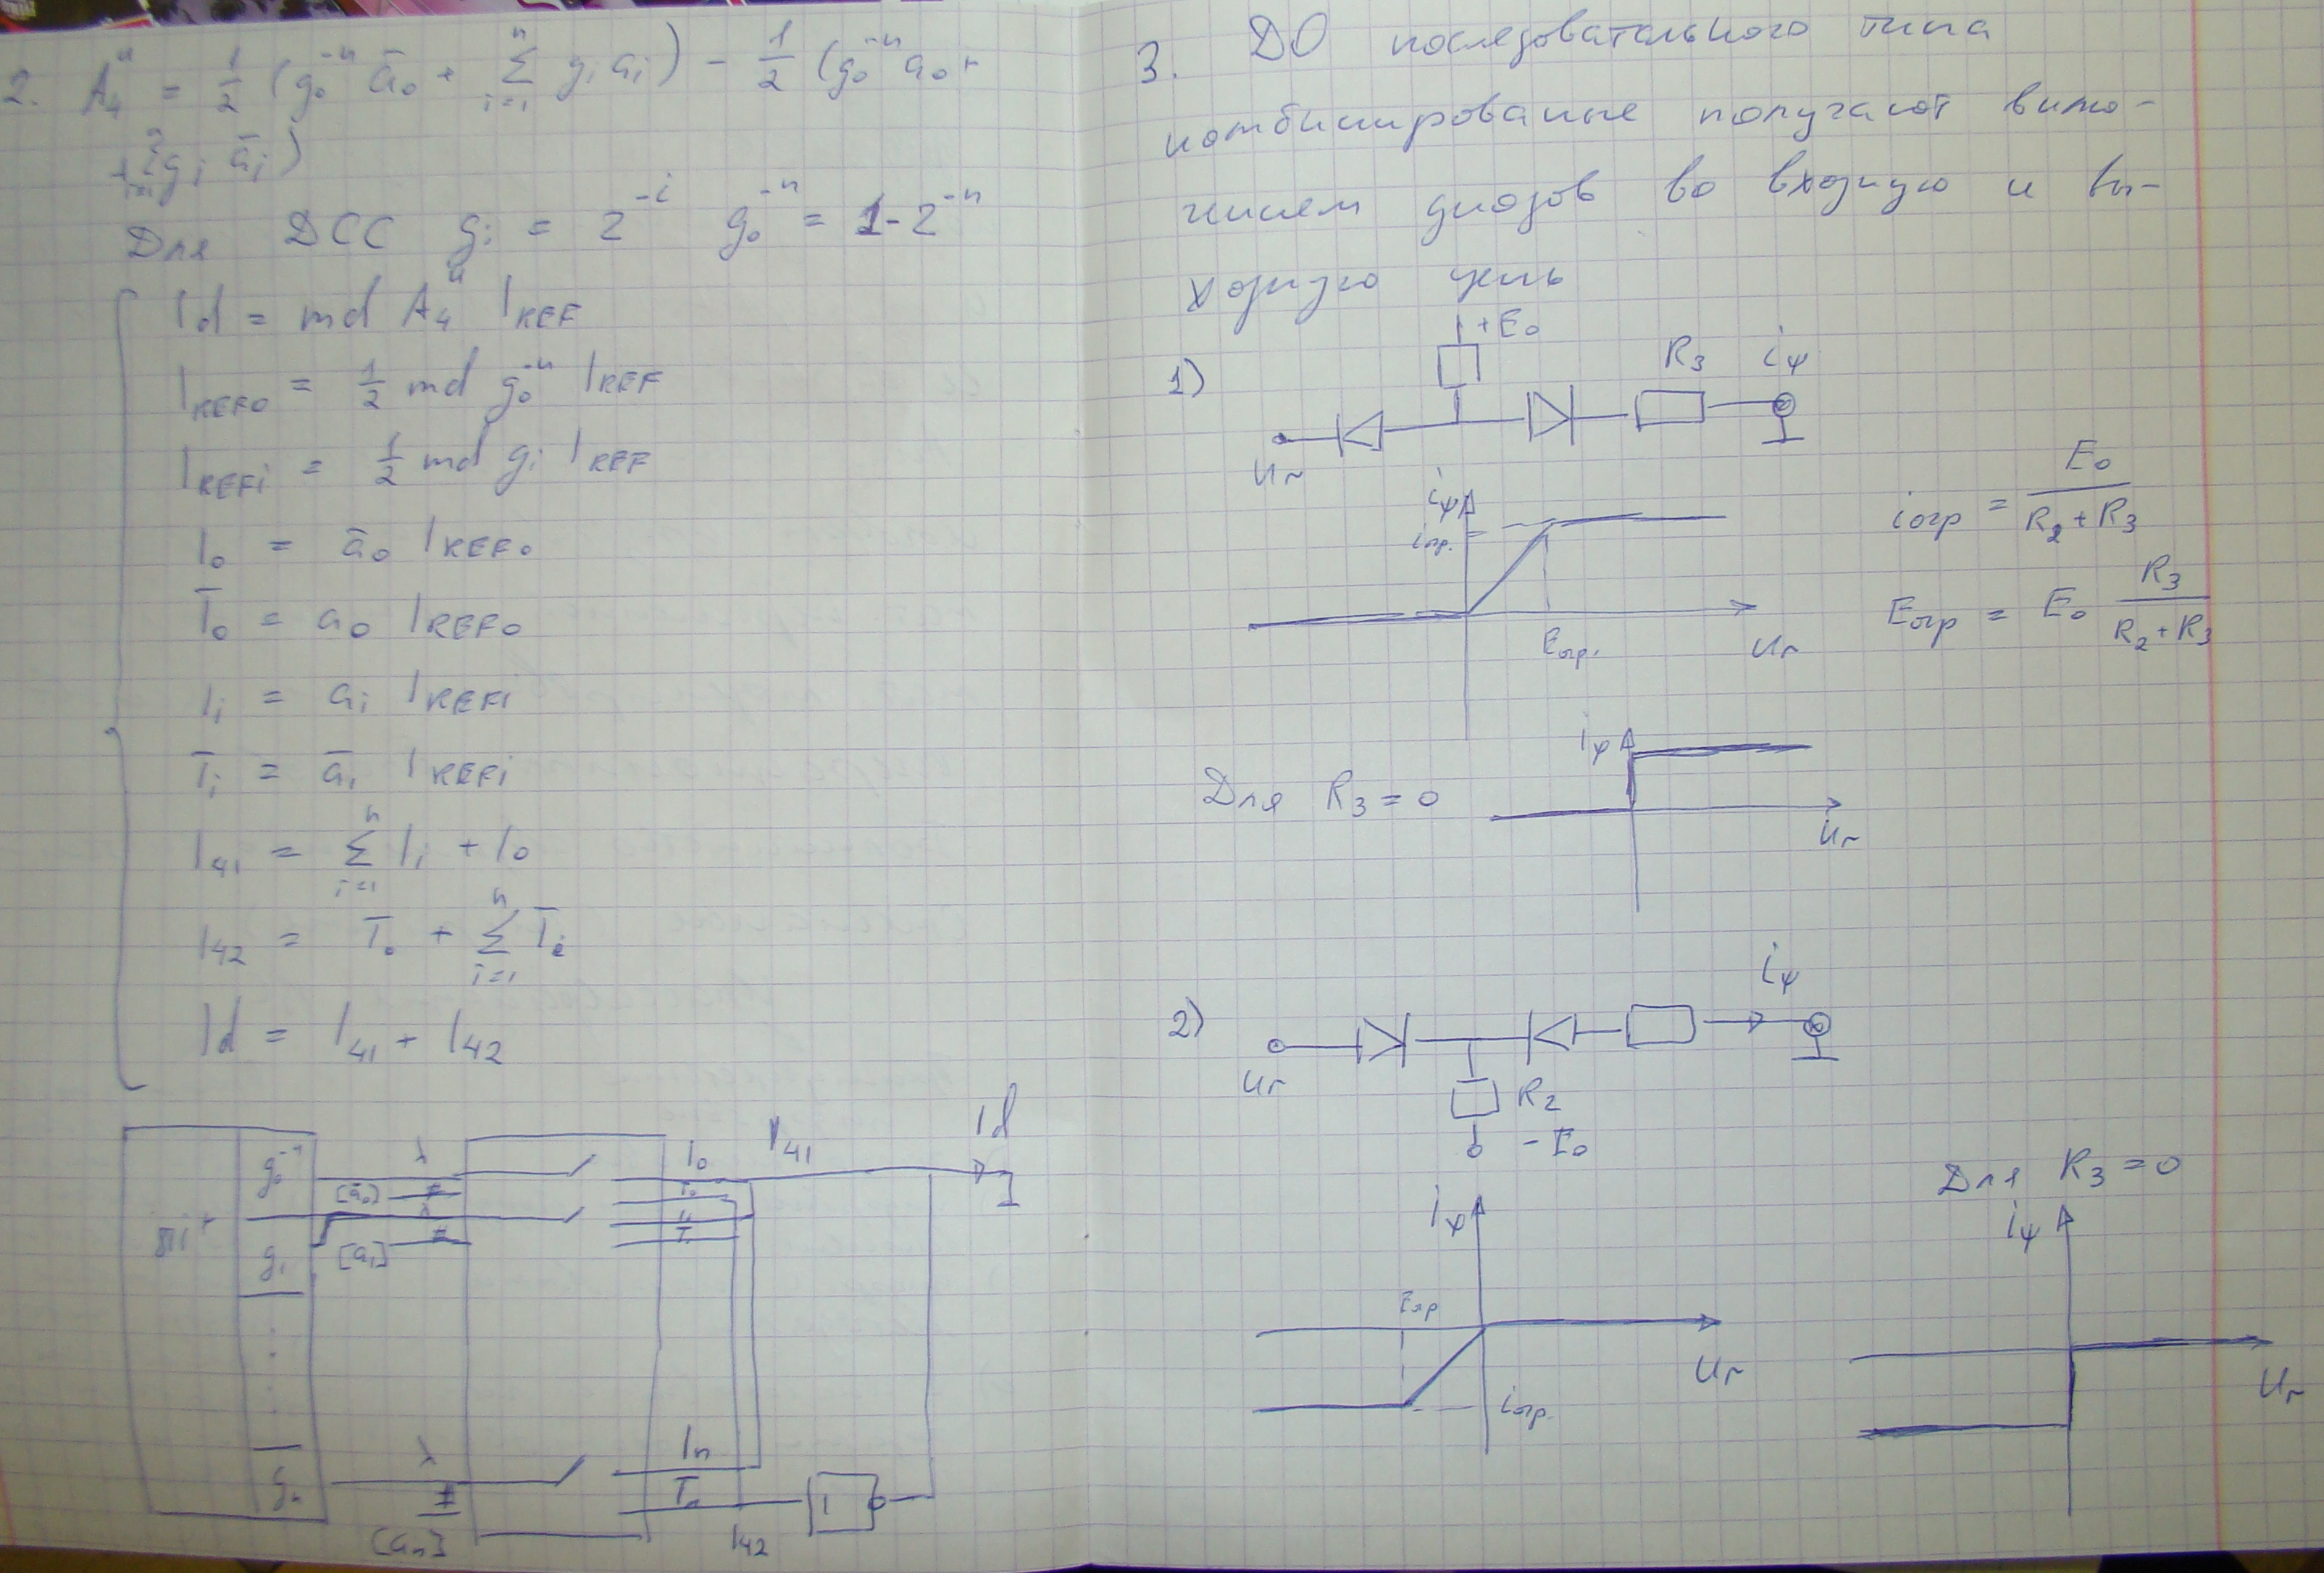 2. A₄ᴵᴵ = 1/2 (g₀⁻ⁿ ā₀ + Σ(i=1..n) gᵢ aᵢ) - 1/2 (g₀⁻ⁿ a₀ +
+ Σ(i=1..n) gᵢ āᵢ)
Для ДСС gᵢ = 2⁻ⁱ g₀⁻ⁿ = 1-2⁻ⁿ
Id = md A₄ᴵᴵ I_REF
I_REF0 = 1/2 md g₀⁻ⁿ I_REF
I_REFi = 1/2 md gᵢ I_REF
I₀ = ā₀ I_REF0
Ī₀ = a₀ I_REF0
Iᵢ = aᵢ I_REFi
Īᵢ = āᵢ I_REFi
I₄₁ = Σ(i=1..n) Iᵢ + I₀
I₄₂ = Ī₀ + Σ(i=1..n) Īᵢ
Id = I₄₁ + I₄₂
g₀⁻ⁿ λ I₀ I₄₁ Id
[ā₀] # Ī₀
λ I₁
g₁ [a₁] # Ī₁
λ Iₙ
gₙ # Īₙ 1
[aₙ] I₄₂
3. ДО последовательного типа
комбинированые получают вклю-
чением диодов во входную и вы-
ходную цепь
+E₀
1) R₃ iψ
Uг
iψ
iогр.
Eогр. Uг
iогр = E₀/(R₂+R₃)
Eогр = E₀ R₃/(R₂+R₃)
Для R₃=0 iψ
Uг
2) iψ
Uг R₂
-E₀
iψ
Eогр
Uг
iогр.
Для R₃=0
iψ
Uг